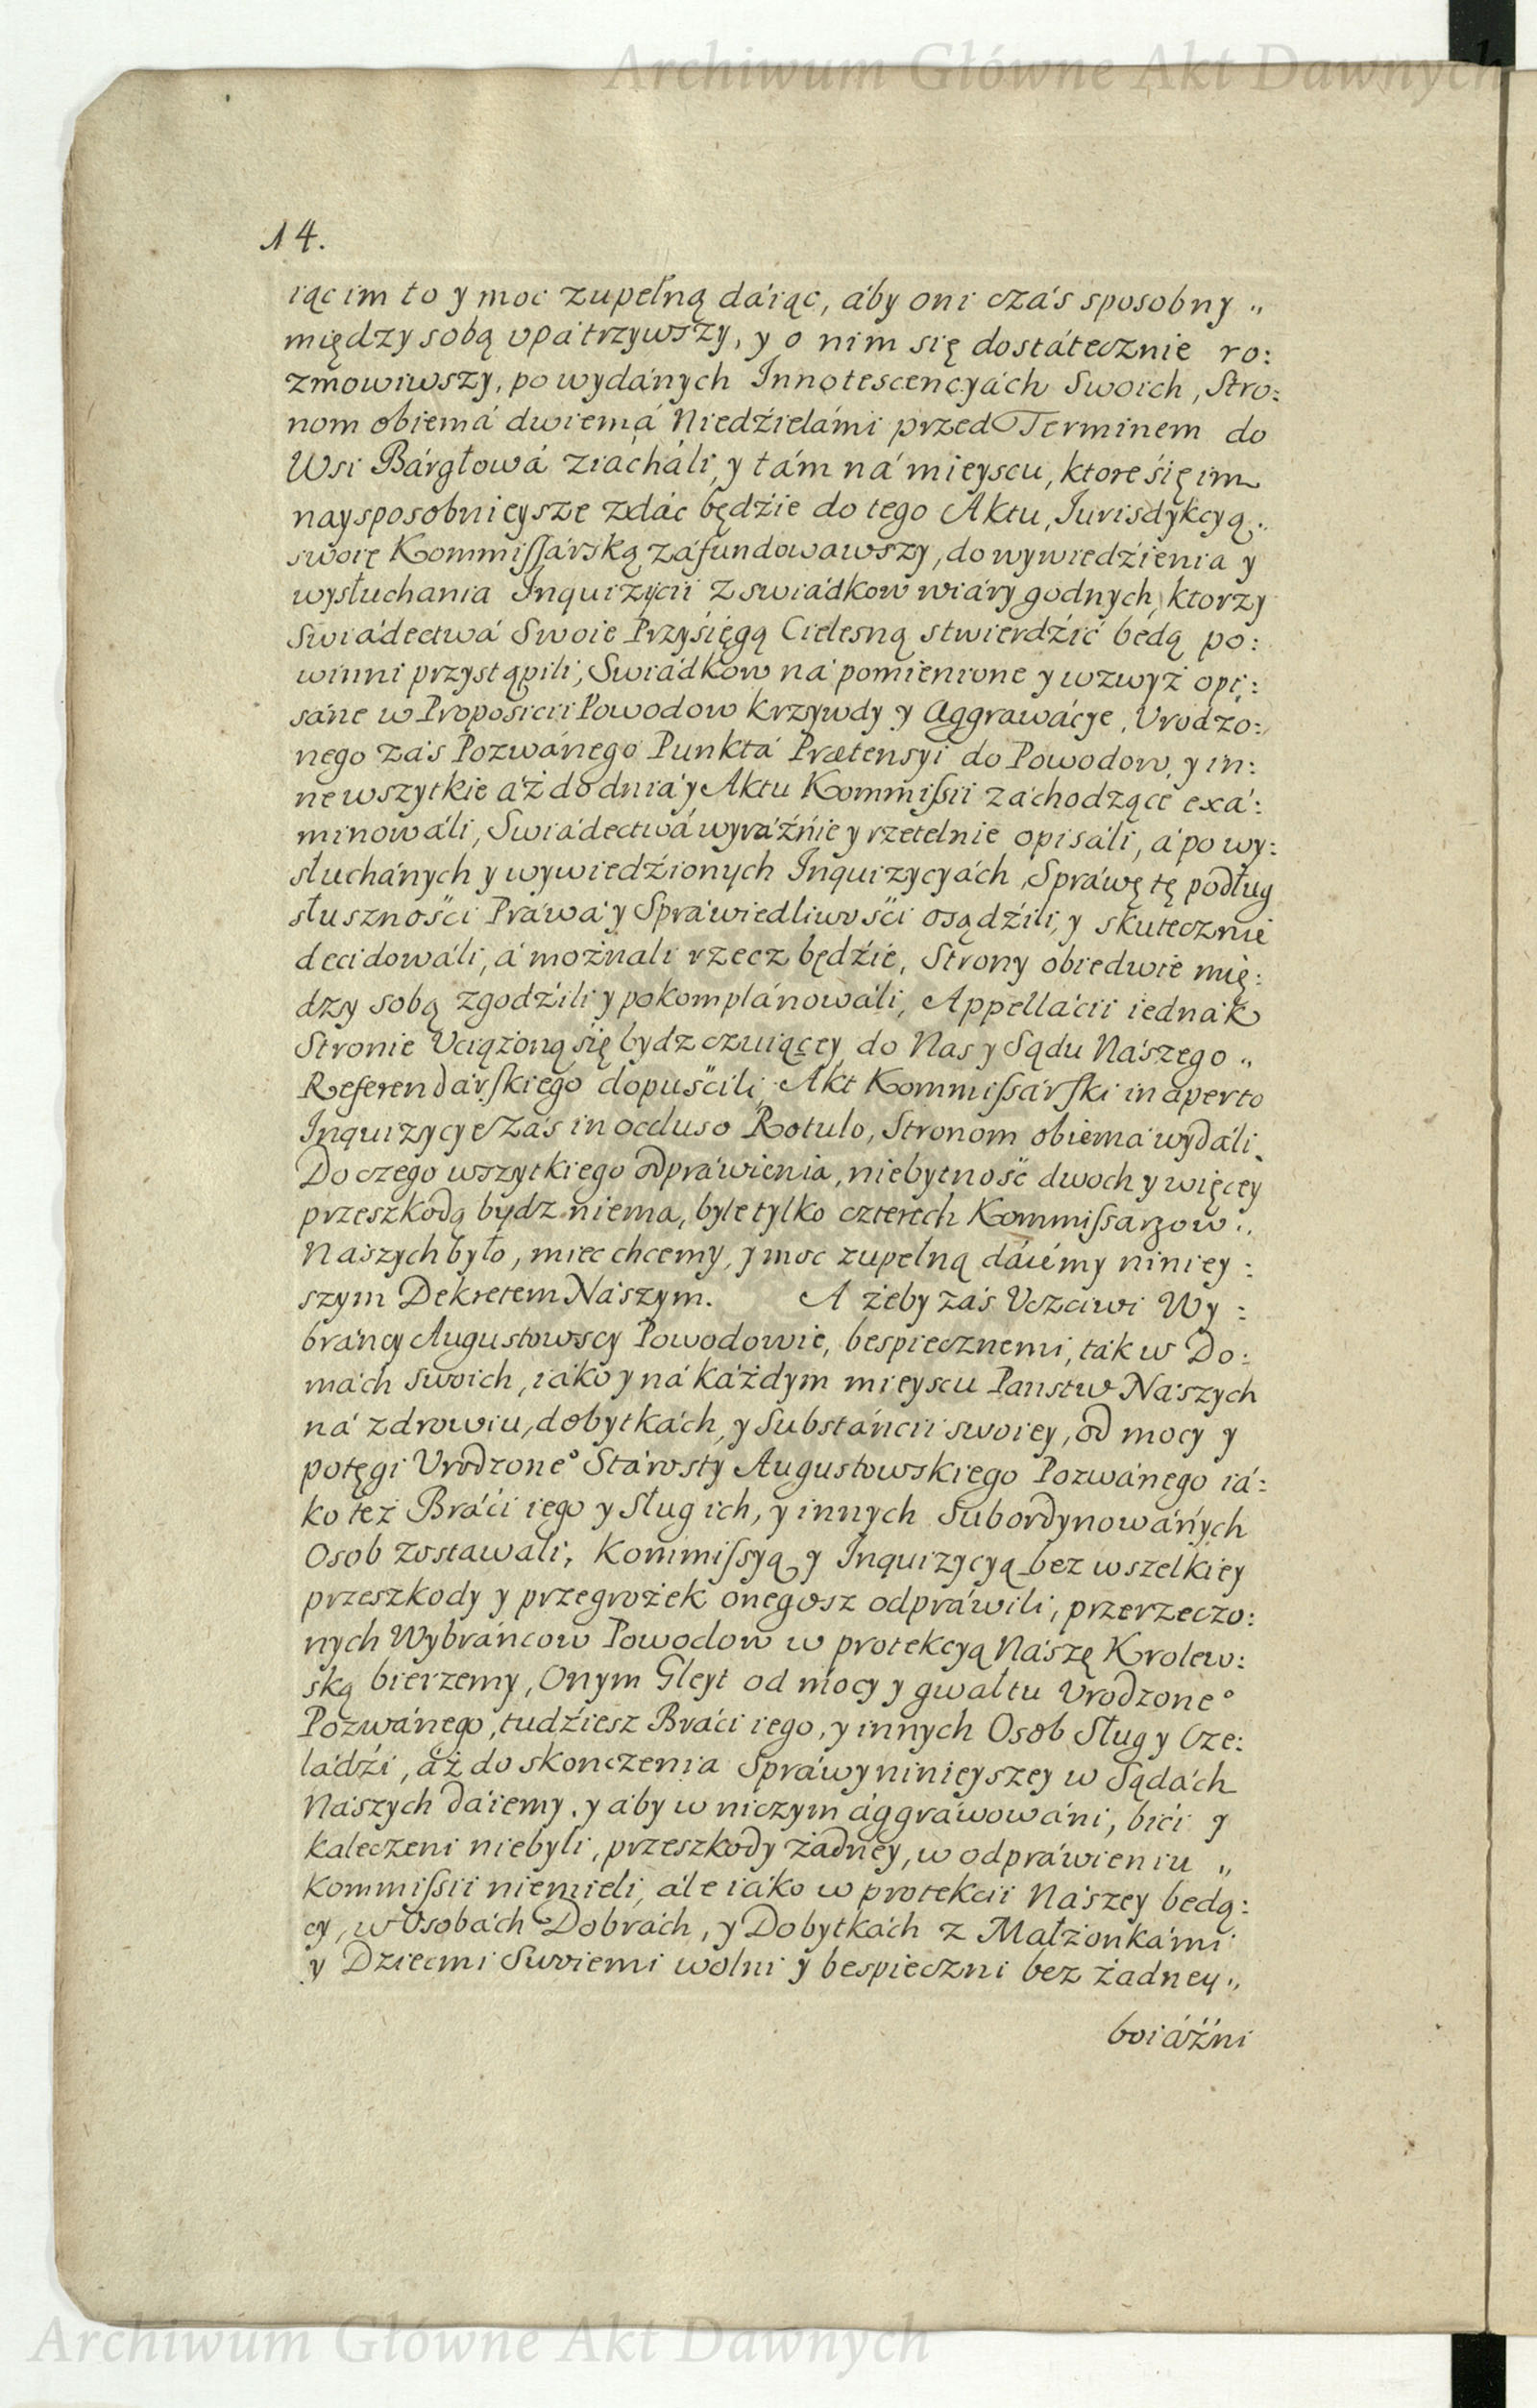 Archiwum Główne Akt Dawnych
14.
iąc im to y moc zupełną dáiąc, áby oni czás sposobny „
między sobą vpátrzywszy, y o nim się dostátecznie ro:
zmowiwszy, po wydánych Innotescencyách Swoich, Stro:
nom obiemá dwiemá Niedźielámi przed Terminem do
Wsi Bárgłowá ziácháli, y tám ná mieyscu, ktore się im
naysposobnieysze zdác będźie do tego Aktu, Jurisdykcyą „
swoię Kommiſſárską záfundowawszy, do wywiedźienia y
wysłuchania Inquizycii z swiádkow wiáry godnych, ktorzy
Swiádectwá Swoie Przysięgą Cielesną stwierdźić bedą po:
winni przystąpili, Swiádkow ná pomienione y wzwyż opi:
sáne w Proposicii Powodow krzywdy y Aggrawácye, Vrodzo:
nego zás Pozwánego Punktá Prætensyi do Powodow, y in:
ne wszytkie áż do dniá y Aktu Kommiſsii záchodzące exá:
minowáli, Swiádectwá wyráźnie y rzetelnie opisáli, á po wy:
słuchánych y wywiedźionych Inquizycyách, Spráwę tę podług
słusznośći Práwá y Spráwiedliwośći osądźili, y skutecznie
decidowáli, á możnali rzecz będźie, Strony obiedwie mię:
dzy sobą zgodźili y pokomplánowáli, Appellácii iednák
Stronie Vciążoną się bydz czuiącey, do Nas y Sądu Nászego „
Referendárſkiego dopuśćili, Akt Kommiſsárſki in aperto
Inquizycye zás in occluso Rotulo, Stronom obiemá wydáli.
Do czego wszytkiego odpráwienia, niebytność dwoch y więcey
przeszkodą bydz niema, byle tylko czterech Kommiſsarzow „
Nászych było, miec chcemy, y moc zupełną dáiémy niniey:
szym Dekretem Nászym. A żeby zás Vczciwi Wy:
bráncy Augustowscy Powodowie, bespiecznemi, ták w Do:
mách swoich, iáko y ná káżdym mieyscu Panstw Nászych
ná zdrowiu, dobytkách, y Substáncii swoiey, od mocy y
potęgi Vrodzone° Stárosty Augustowskiego Pozwánego iá:
ko też Bráći iego y Sług ich, y innych Subordynowánych
Osob zostawali, Kommiſsyą y Inquizycyą bez wszelkiey
przeszkody y przegrożek onegosz odpráwili, przerzeczo:
nych Wybráncow Powodow w protekcyą Nászę Krolew:
ską bierzemy, Onym Gleyt od mocy y gwałtu Vrodzone°
Pozwánego, tudźiesz Bráci iego, y innych Osob Sług y Cze:
ládźi, áż do skonczenia Spráwy ninieyszey w Sądách
Nászych dáiemy, y áby w niczym ággráwowáni, bići y
kaleczeni niebyli, przeszkody żadney, w odpráwieniu „
Kommiſsii niemieli, ále iáko w protekcii Nászey bedą:
cy, w Osobách Dobrách, y Dobytkách z Małżonkámi
y Dziecmi Swoiemi wolni y bespieczni bez żadney „
boiáźni
Archiwum Główne Akt Dawnych